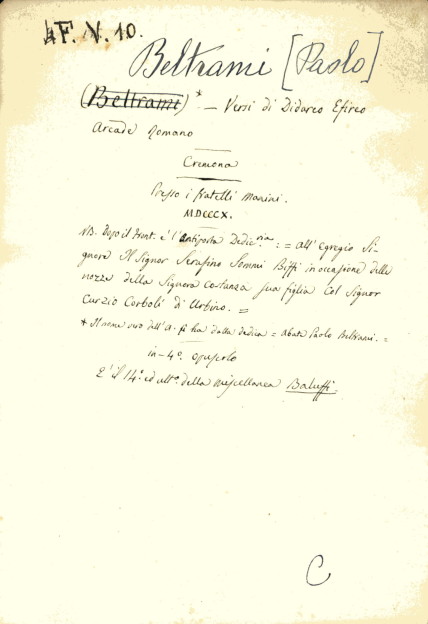 4F. N. 10.
Beltrami [Paolo]
(Beltrami)* — Versi di Didareo Efireo
Arcade Romano
Cremona
Presso i fratelli Manini.
MDCCCX.
NB. Dopo il front. è l'Antiporta Dedic.ria : = all'Egregio Si-
gnore Il Signor Serafino Sommi Biffi in occasione delle
nozze della Signora Costanza sua figlia col Signor
Curzio Corboli di Urbino. =
* Il nome vero dell'A. si ha dalla dedica = Abate Paolo Beltrami. =
in-4°. opuscolo
E' il 14.° ed ult.° della miscellanea Baluffi.
C